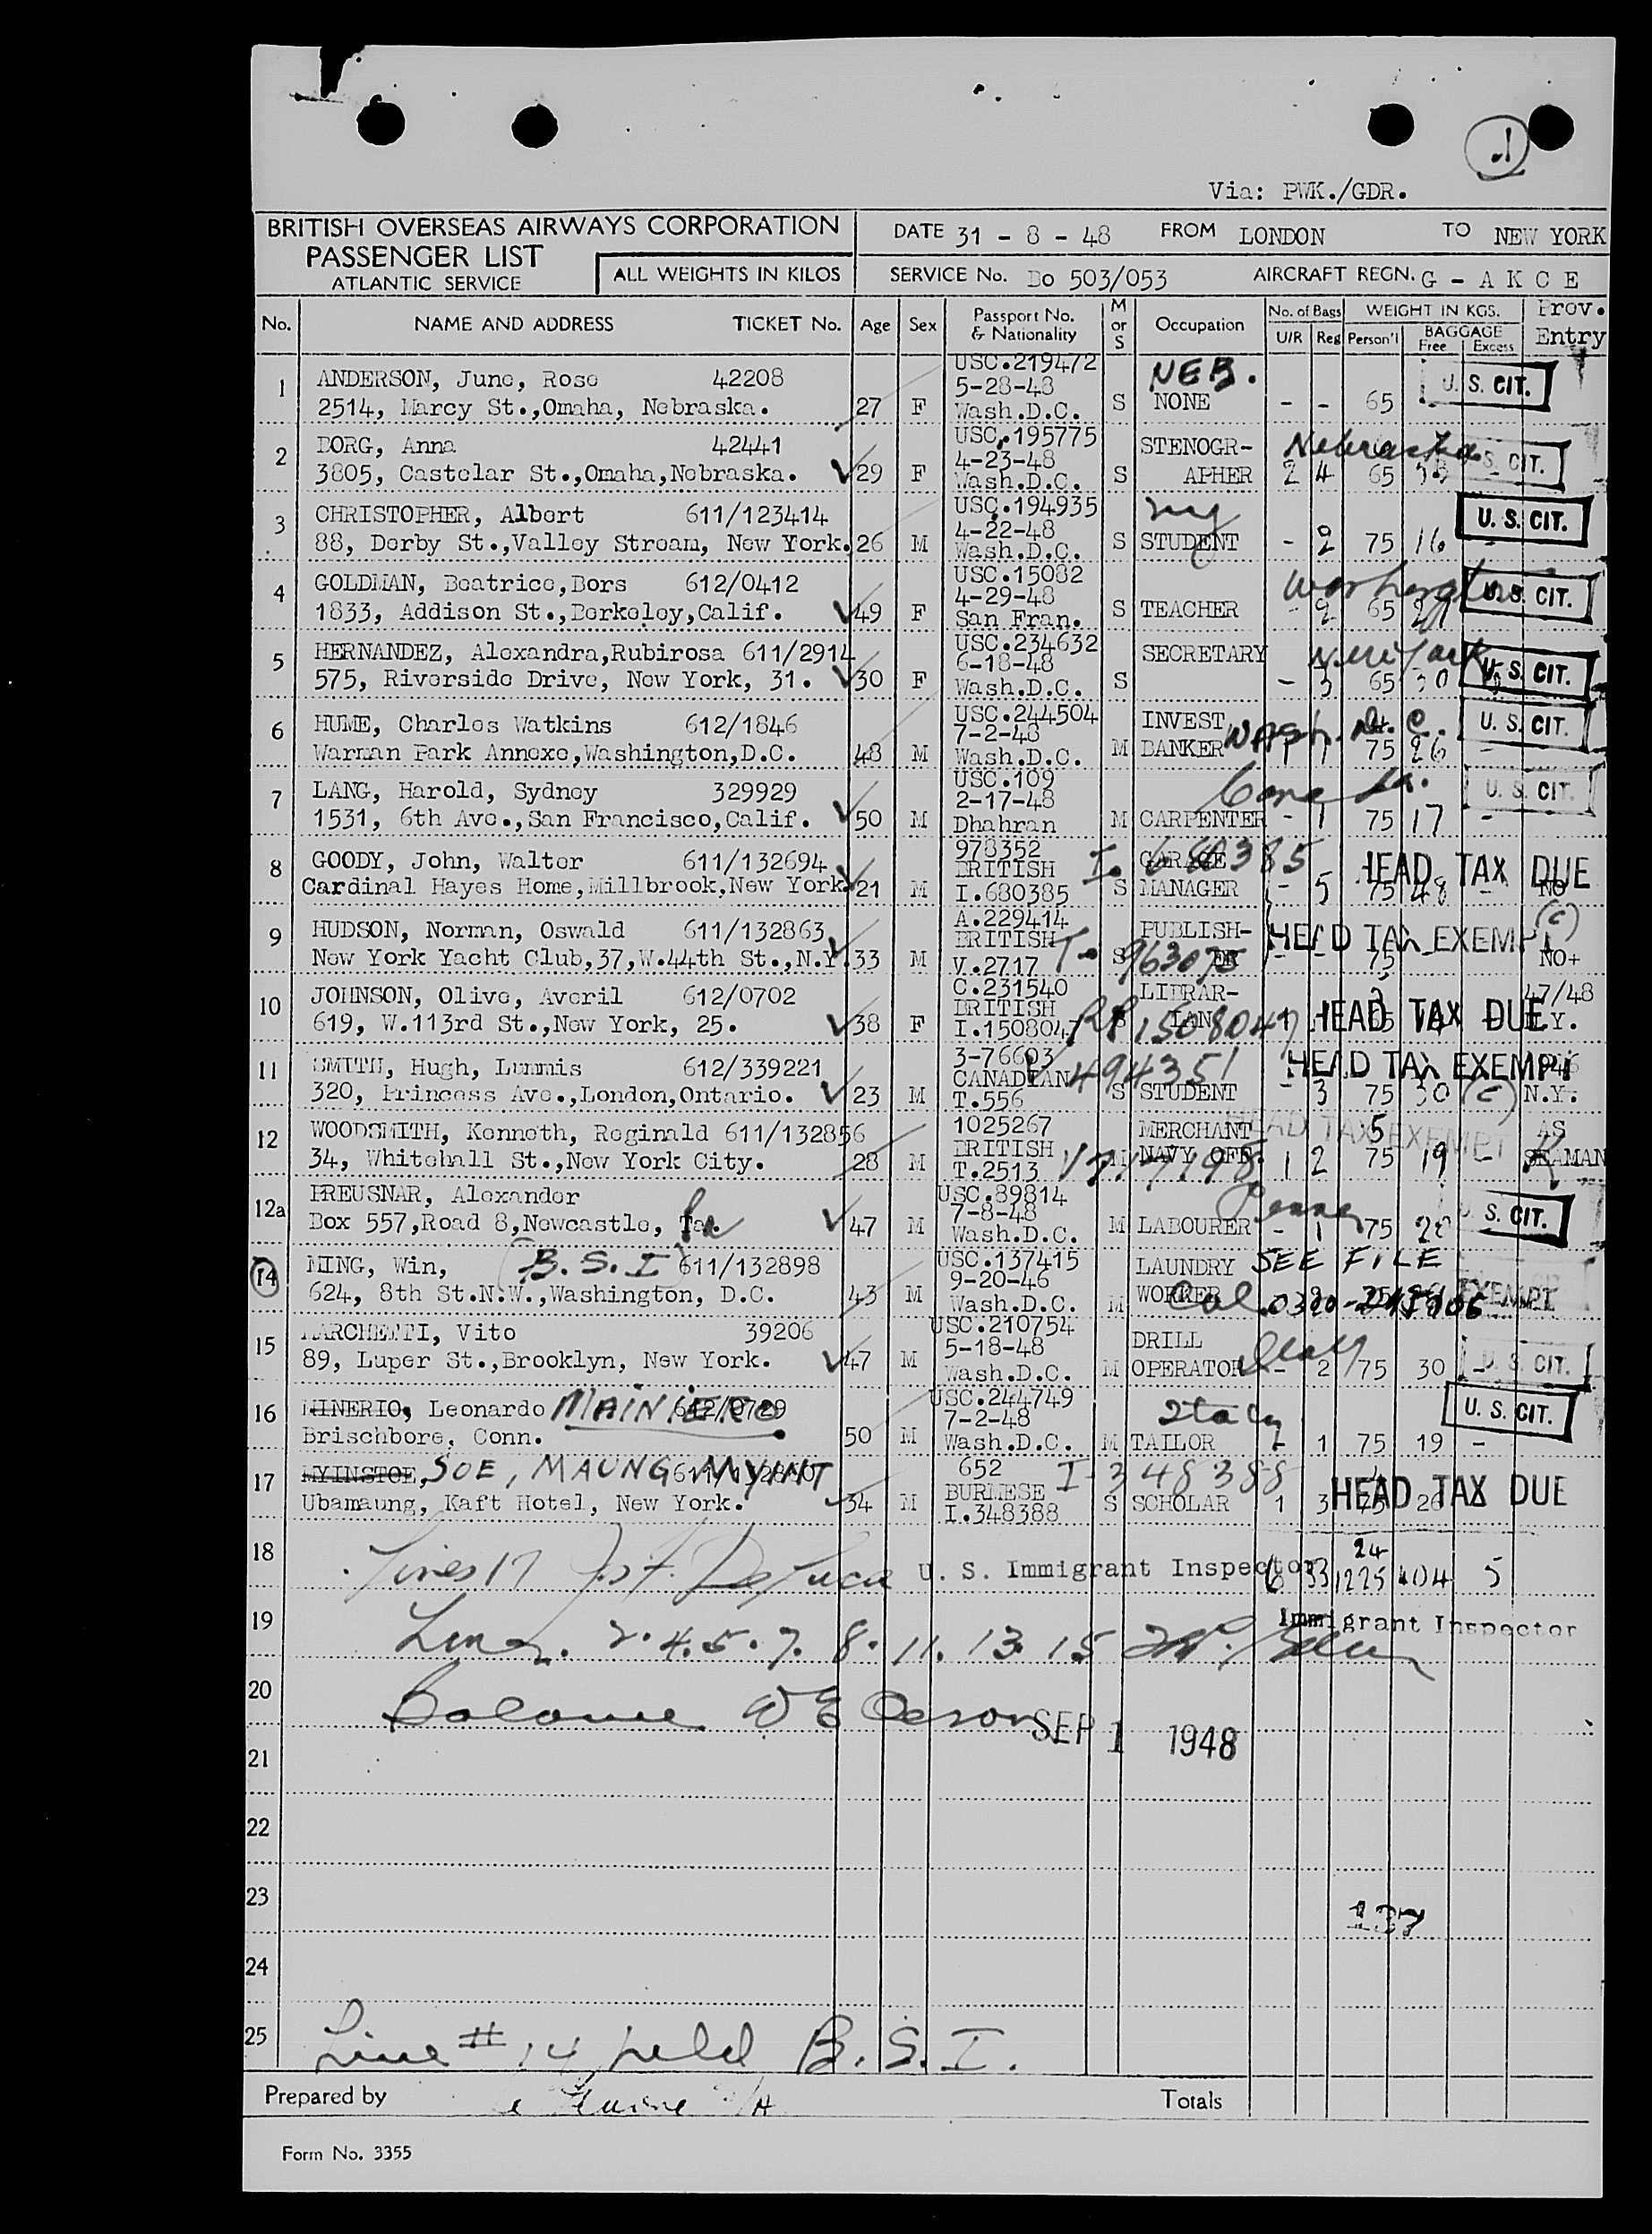 Via: PWK./GDR.
BRITISH OVERSEAS AIRWAYS CORPORATION
PASSENGER LIST
ATLANTIC SERVICE
ALL WEIGHTS IN KILOS
DATE 31 - 8 - 48 FROM LONDON TO NEW YORK
SERVICE No. Bo 503/053 AIRCRAFT REGN. G - A K C E
No. NAME AND ADDRESS TICKET No. Age Sex Passport No. & Nationality M or S Occupation No. of Bags U/R Reg WEIGHT IN KGS. Person'l BAGGAGE Free Excess Prov. Entry
USC.219472 NEB.
1 ANDERSON, June, Rose 42208 5-28-48 U. S. CIT.
2514, Marcy St.,Omaha, Nebraska. 27 F Wash.D.C. S NONE - - 65 -
USC.195775
2 BORG, Anna 42441 4-23-48 STENOGR- Nebraska S. CIT.
3805, Castelar St.,Omaha,Nebraska. 29 F Wash.D.C. S APHER 2 4 65
USC.194935 ny
3 CHRISTOPHER, Albert 611/123414 4-22-48 U. S. CIT.
88, Derby St.,Valley Stream, New York. 26 M Wash.D.C. S STUDENT - 2 75 16 -
USC.15082
4 GOLDMAN, Beatrice,Bors 612/0412 4-29-48 Washington U. S. CIT.
1833, Addison St.,Berkeley,Calif. 49 F San Fran. S TEACHER - 2 65
USC.234632
5 HERNANDEZ, Alexandra,Rubirosa 611/2914 6-18-48 SECRETARY New York U. S. CIT.
575, Riverside Drive, New York, 31. 30 F Wash.D.C. S - 3 65 30
USC.244504
6 HUME, Charles Watkins 612/1846 7-2-48 INVEST Wash. D. C. U. S. CIT.
Warman Park Annexe,Washington,D.C. 48 M Wash.D.C. M BANKER 1 1 75 26 -
USC.109
7 LANG, Harold, Sydney 329929 2-17-48 Canada. U. S. CIT.
1531, 6th Ave.,San Francisco,Calif. 50 M Dhahran M CARPENTER - 1 75 17 -
978352
8 GOODY, John, Walter 611/132694 BRITISH I. 680385 GARAGE HEAD TAX DUE
Cardinal Hayes Home,Millbrook,New York. 21 M I.680385 S MANAGER - 5 75 48 - NO
A.229414 (c)
9 HUDSON, Norman, Oswald 611/132863 BRITISH PUBLISH- HEAD TAX EXEMPT
New York Yacht Club,37,W.44th St.,N.Y. 33 M V.2717 S ER 963075 - - 75 - NO+
C.231540
10 JOHNSON, Olive, Averil 612/0702 BRITISH LIBRAR- 47/48
619, W.113rd St.,New York, 25. 38 F I.1508047 S IAN RP 1508047 1 HEAD TAX DUE N.Y.
3-76603
11 SMITH, Hugh, Lummis 612/339221 CANADIAN 494351 HEAD TAX EXEMPT
320, Princess Ave.,London,Ontario. 23 M T.556 S STUDENT - 3 75 30 (c) N.Y.
1025267
12 WOODSMITH, Kenneth, Reginald 611/132856 BRITISH MERCHANT HEAD TAX EXEMPT AS
34, Whitehall St.,New York City. 28 M T.2513 NAVY OFF. 1 2 75 19 - SEAMAN
USC.89814
12a PREUSNAR, Alexander 7-8-48 Penna S. CIT.
Box 557,Road 8,Newcastle, Pa. 47 M Wash.D.C. M LABOURER - 1 75
USC.137415
14 MING, Win, (B. S. I) 611/132898 9-20-46 LAUNDRY SEE FILE
624, 8th St.N.W.,Washington, D.C. 43 M Wash.D.C. M WORKER Cal. EXEMPT
USC.210754
15 MARCHETTI, Vito 39206 5-18-48 DRILL Italy U. S. CIT.
89, Luper St.,Brooklyn, New York. 47 M Wash.D.C. M OPERATOR - 2 75 30 -
USC.244749
16 MINERIO, Leonardo MAINIERO 7-2-48 Italy U. S. CIT.
Brischbore, Conn. 50 M Wash.D.C. M TAILOR - 1 75 19 -
17 MYINSTOE, SOE, MAUNG MYINT 652 I 348388
Ubamaung, Kaft Hotel, New York. 34 M BURMESE I.348388 S SCHOLAR 1 3 75 26 HEAD TAX DUE
18 Lines 17 U. S. Immigrant Inspector 6 33 24 1225 404 5
19 Lines. 2. 4. 5. 7. 8. 11. 13. 15 Immigrant Inspector
20 Balance
SEP 1 1948
21
22
23 137
24
25 Line # 14 held B. S. I.
Prepared by Totals
Form No. 3355